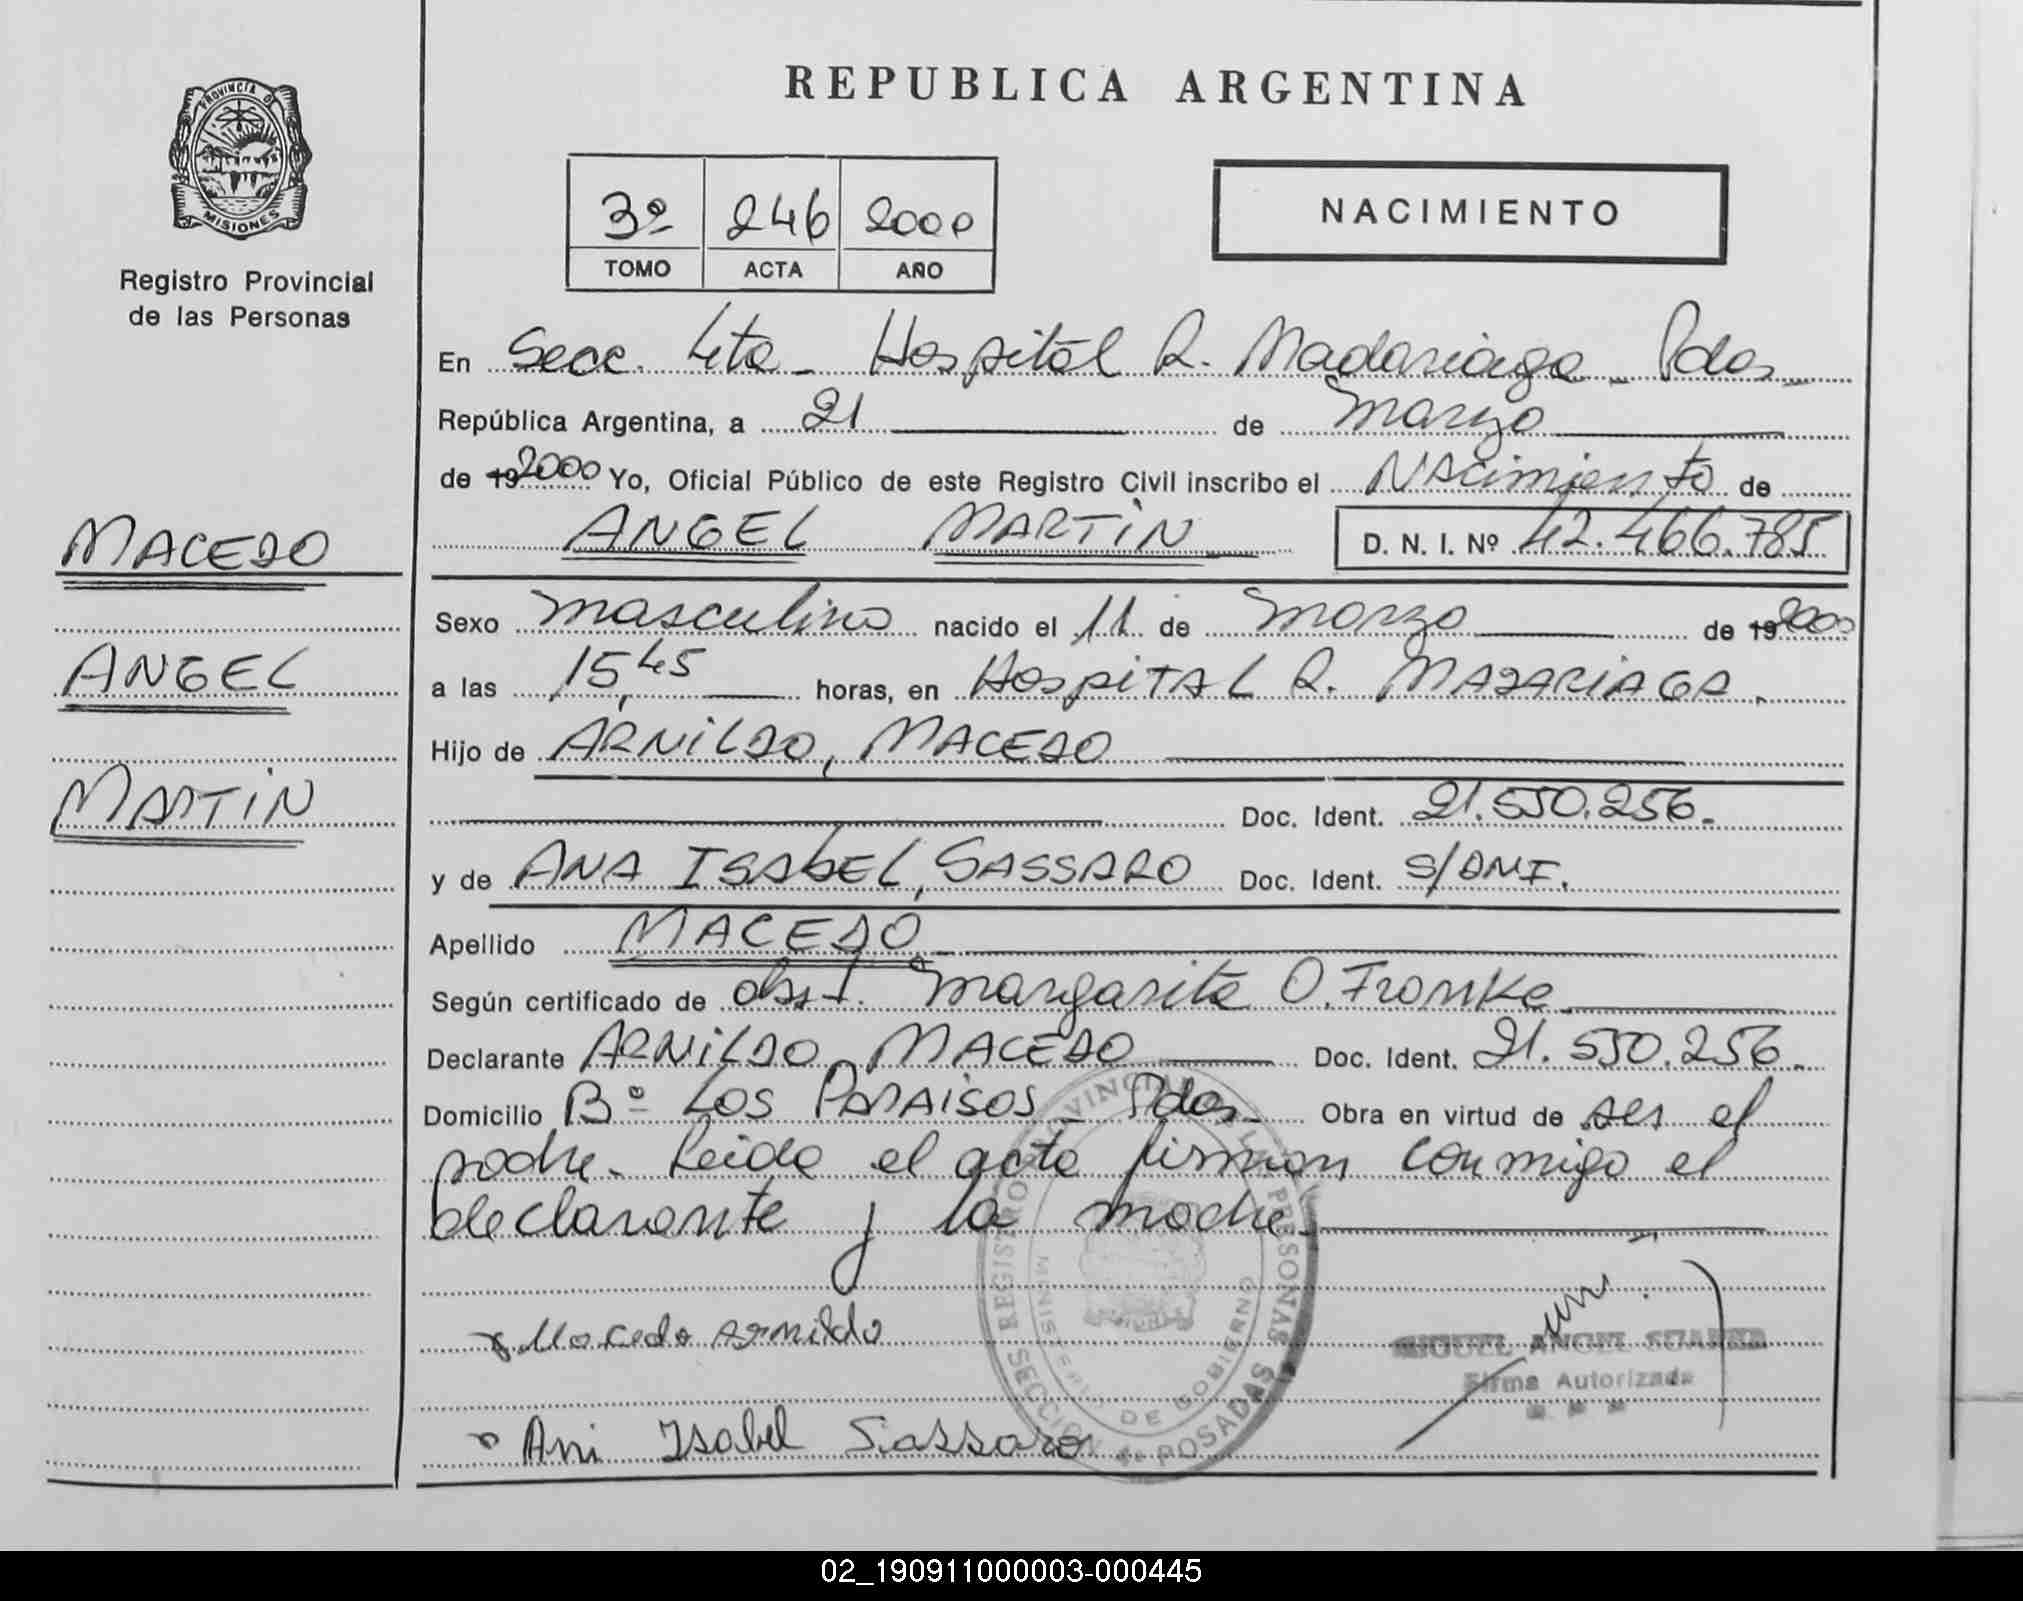 REPUBLICA ARGENTINA
PROVINCIA DE
MISIONES
Registro Provincial
de las Personas
3º 246 2000
TOMO ACTA AÑO
NACIMIENTO
En Secc. 4ta - Hospital R. Madariaga - Pdas -
República Argentina, a 21 de Marzo
de 19 2000 Yo, Oficial Público de este Registro Civil inscribo el Nacimiento de
ANGEL MARTIN D. N. I. Nº 42.466.785
MACEDO
ANGEL
MARTIN
Sexo Masculino nacido el 11 de Marzo de 19 2000
a las 15,45 horas, en HOSPITAL R. MADARIAGA.
Hijo de ARNILDO, MACEDO
Doc. Ident. 21.550.256.
y de ANA ISABEL, SASSARO Doc. Ident. S/DNI.
Apellido MACEDO
Según certificado de obst. Margarita O. Fronke
Declarante ARNILDO, MACEDO Doc. Ident. 21.550.256.
Domicilio Bº LOS PARAISOS - Pdas - Obra en virtud de ser el
padre. Leida el acta firman conmigo el
declarante y la madre.
Macedo Arnildo
Ani Isabel Sassaro
REGISTRO PROVINCIAL DE LAS PERSONAS
MINISTERIO DE GOBIERNO
SECCION 4a POSADAS
MIGUEL ANGEL SUAREZ
Firma Autorizada
02_190911000003-000445